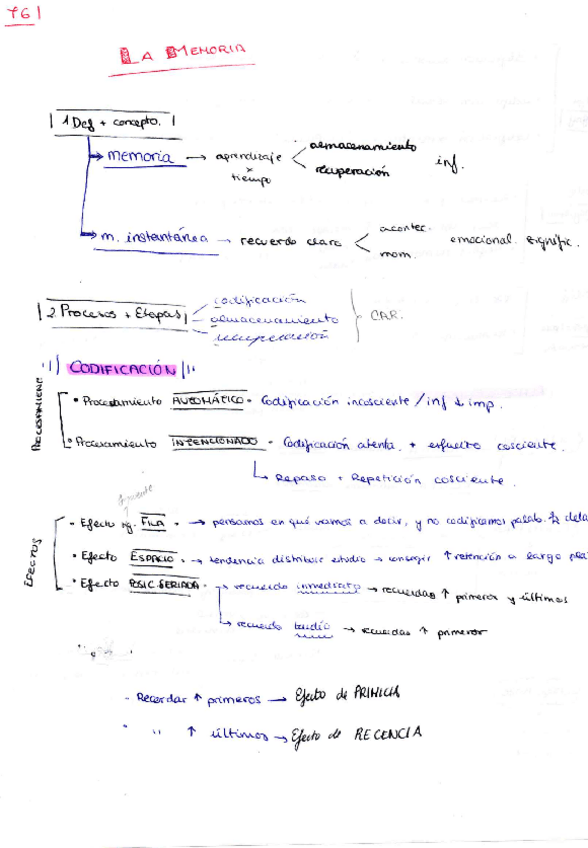 T6|
LA MEMORIA
| 1 Def + concepto. |
memoria → aprendizaje x tiempo < almacenamiento recuperación inf.
m. instantánea → recuerdo claro < acontec. mom. emocional. signific.
| 2 Procesos + Etapas | codificación almacenamiento recuperación } CAR.
1) CODIFICACIÓN
• Procesamiento AUTOMÁTICO - Codificación incosciente / inf ↓ imp.
• Procesamiento INTENCIONADO - Codificación atenta. + esfuerzo cosciente.
Repaso + Repetición cosciente.
PROCESAMIENT
siguiente
- Efecto sg. FILA. → pensamos en qué vamos a decir, y no codificamos palab.
• Efecto ESPACIO → tendencia distribuir estudio → conseguir ↑ retención a largo
• Efecto POSIC. SERIADA. → recuerdo inmediato → recuerdas ↑ primeros y últimos
→ recuerdo tardío → recuerdas ↑ primeros
EFECTOS
- Recordar ↑ primeros → Efecto de PRIMICIA
" " ↑ últimos → Efecto de RECENCIA